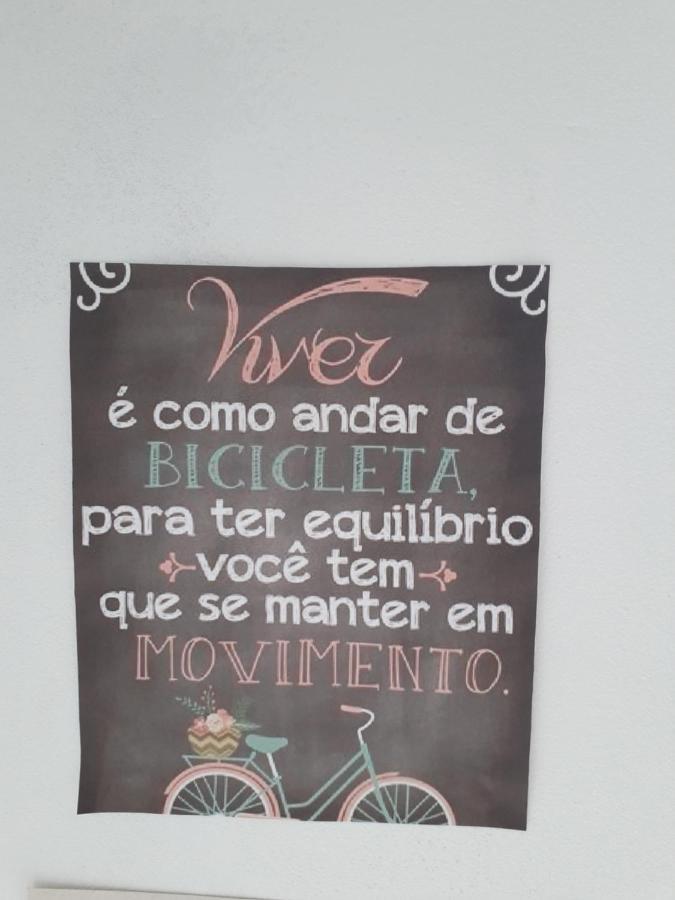 Viver
é como andar de
BICICLETA,
para ter equilíbrio
você tem
que se manter em
MOVIMENTO.